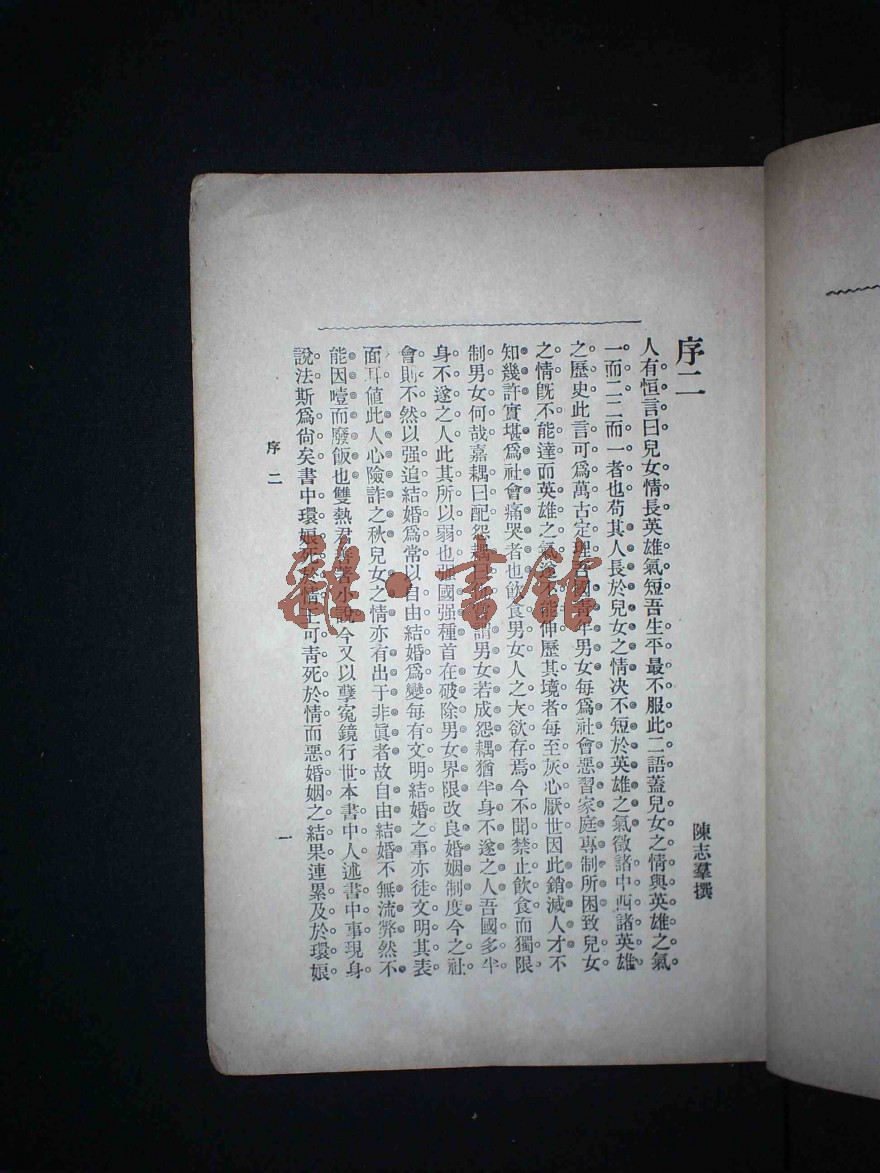 序二
陳志羣撰
人有恒言曰兒女情長英雄氣短吾生平最不服此二語蓋兒女之情與英雄之氣
一而二二而一者也苟其人長於兒女之情決不短於英雄之氣徵諸中西諸英雄
之歷史此言可爲萬古定理吾國靑年男女每爲社會惡習家庭專制所困致兒女
之情旣不能達而英雄之氣遂不能伸歷其境者每至灰心厭世因此銷減人才不
知幾許實堪爲社會痛哭者也飲食男女人之大欲存焉今不聞禁止飲食而獨限
制男女何哉嘉耦曰配怨耦男女若成怨耦猶半身不遂之人吾國多半
身不遂之人此其所以弱也强國强種首在破除男女界限改良婚姻制度今之社
會則不然以强迫結婚爲常以自由結婚爲變每有文明結婚之事亦徒文明其表
面耳値此人心險詐之秋兒女之情亦有出于非眞者故自由結婚不無流弊然不
能因噎而廢飯也雙熱君小說今又以孽冤鏡行世本書中人述書中事現身
說法斯爲尙矣書中環娘死於情上可靑死於情而惡婚姻之結果連累及於環娘
序二
一
雜·書館